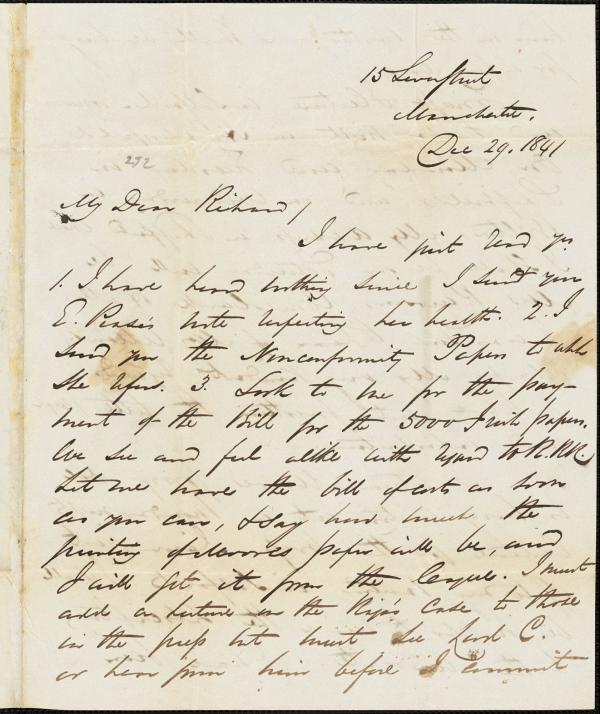 15 Lever Street
Manchester.
Dec 29. 1841
252
My Dear Richard /
I have just read yrs.
1. I have heard nothing since I sent you
E. Pease's note respecting her health. 2. I
send you the Nonconformity Papers to which
she refers. 3. Look to me for the pay-
ment of the Bill for the 5000 Irish papers.
We see and feel alike with regard to R.R.R.
Let me have the bill of costs as soon
as you can, & say how much the
printing of paper will be, and
I will get it from the League. I must
add a lecture on the Raja's case to those
in the press but must see Lord C.
or hear from him before I commit